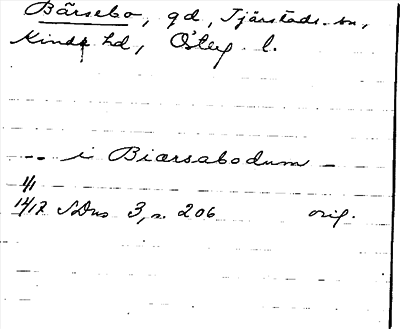 Bärsebo, gd, Tjärstads sn,
Kinds hd, Österg. l.
-- i Biærsabodum -
1/1
1417 SDns 3, s. 206 orig.